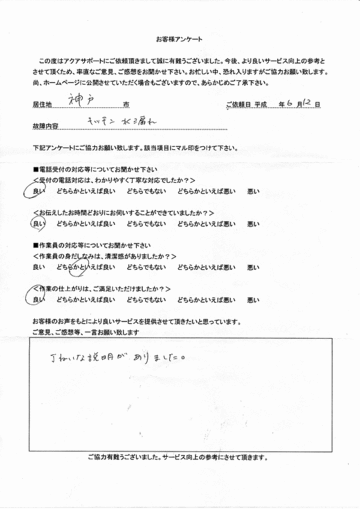 お客様アンケート
この度はアクアサポートにご依頼頂きまして誠に有難うございました。今後、より良いサービス向上の参考と
させて頂くため、率直なご意見、ご感想をお聞かせ下さい。お忙しい中、恐れ入りますがご協力お願い致します。
尚、ホームページに公開させていただく場合もございますので、あらかじめご了承下さい。
居住地 神戸 市 ご依頼日 平成 年 6 月 12 日
故障内容 キッチン 水漏れ
下記アンケートにご協力お願い致します。該当項目にマル印をつけて下さい。
■電話受付の対応等についてお聞かせ下さい
<受付の電話対応は、わかりやすく丁寧な対応でしたか?>
良い どちらかといえば良い どちらでもない どちらかといえば悪い 悪い
<お伝えしたお時間どおりにお伺いすることができていましたか?>
良い どちらかといえば良い どちらでもない どちらかといえば悪い 悪い
■作業員の対応等についてお聞かせ下さい
<作業員の身だしなみは、清潔感がありましたか?>
良い どちらかといえば良い どちらでもない どちらかといえば悪い 悪い
<作業の仕上がりは、ご満足いただけましたか?>
良い どちらかといえば良い どちらでもない どちらかといえば悪い 悪い
お客様のお声をもとにより良いサービスを提供させて頂きたいと思っています。
ご意見、ご感想等、一言お願い致します
丁ねいな説明がありました。
ご協力有難うございました。サービス向上の参考にさせて頂きます。